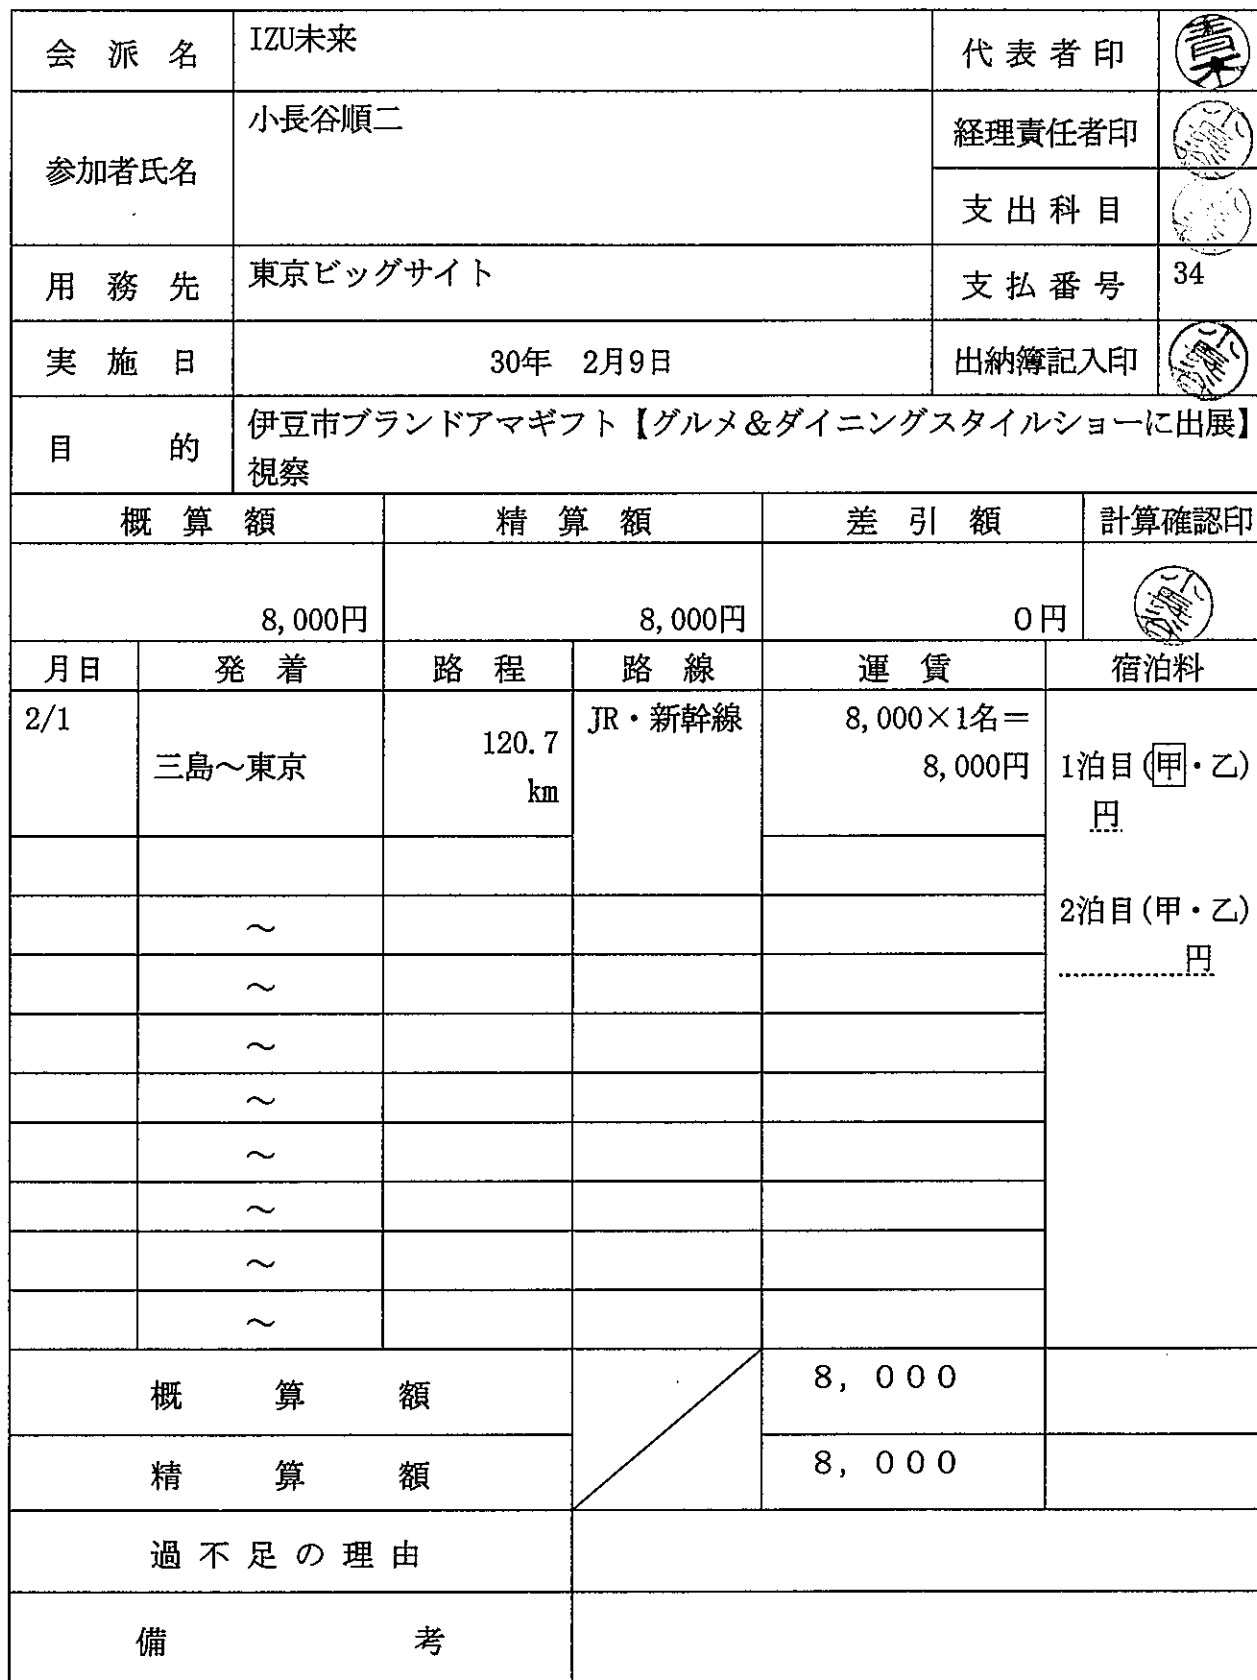 会派名 IZU未来 代表者印 青木
参加者氏名 小長谷順二 経理責任者印
支出科目
用務先 東京ビッグサイト 支払番号 34
実施日 30年 2月9日 出納簿記入印
目的 伊豆市ブランドアマギフト【グルメ&ダイニングスタイルショーに出展】
視察
概算額 精算額 差引額 計算確認印
8,000円 8,000円 0円
月日 発着 路程 路線 運賃 宿泊料
2/1 三島~東京 120.7 JR・新幹線 8,000×1名=
km 8,000円 1泊目(甲・乙)
円
~ 2泊目(甲・乙)
~ 円
~
~
~
~
~
~
概算額 8,000
精算額 8,000
過不足の理由
備考